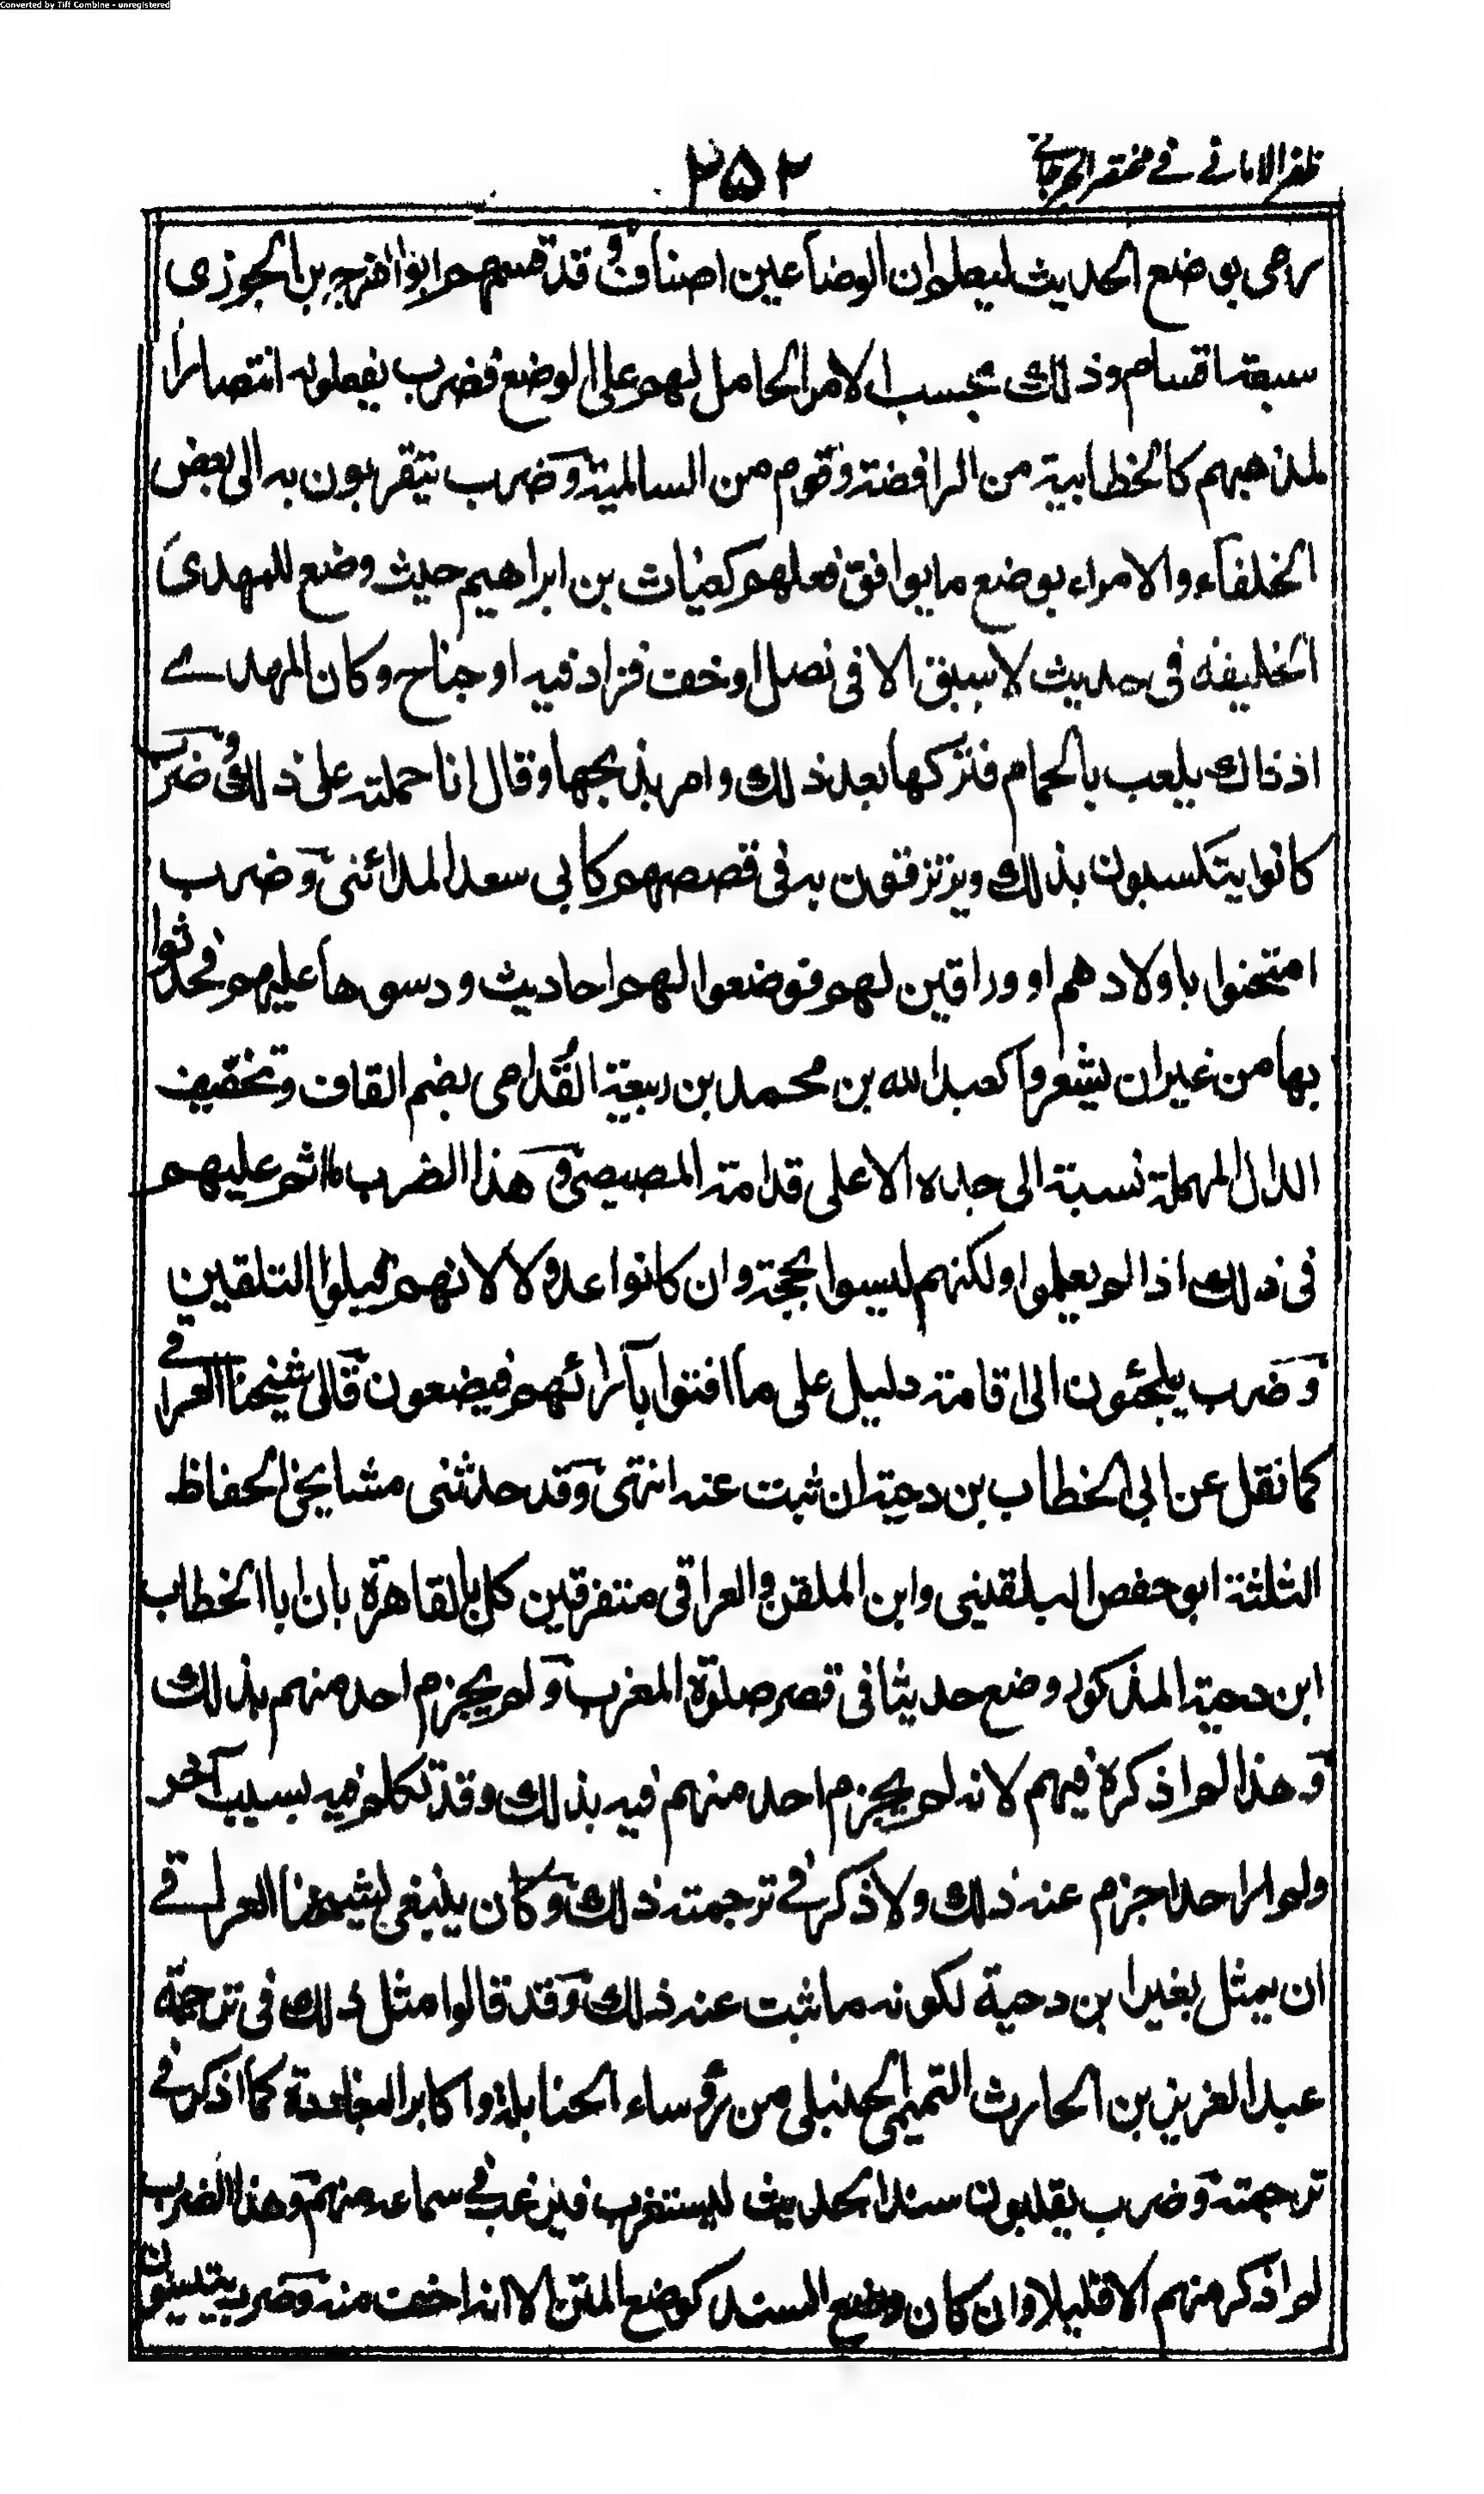 Converted by Tiff Combine - unregistered
ظفر الامانی فی مختصر الجرجانی
۲۵۲
رمی بوضع الحدیث لیعلموا ان الوضاعین اصناف وقد قسمهم ابو الفرج بن الجوزی
سبعة اقسام وذلك بحسب الامر الحامل لهم علی الوضع فضرب یفعلونه انتصارا
لمذهبهم کالخطابیة من الرافضة وقوم من السالمیة وضرب یتقربون به الی بعض
الخلفاء والامراء بوضع ما یوافق فعلهم کغیاث بن ابراهیم حیث وضع للمهدی
الخلیفه فی حدیث لا سبق الا فی نصل او خف فزاد فیه او جناح وکان المهدے
اذ ذاك یلعب بالحمام فترکها بعد ذلك وامر بذبحها وقال انا حملته علی ذلك وضرب
کانوا یتکسبون بذلك ویرتزقون به فی قصصهم کابی سعد المدائنی وضرب
امتحنوا باولادهم او وراقین لهم فوضعوا لهم احادیث ودسوها علیهم فحدثوا
بها من غیر ان یشعروا کعبد الله بن محمد بن ربیعة القُدامی بضم القاف وتخفیف
الدال المهملة نسبة الی جده الاعلی قدامة المصیصی وهذا الضرب لا اثم علیهم
فی ذلك اذا لم یعلموا ولکنهم لیسوا بحجة وان کانوا عدولا لانهم قبلوا التلقین
وضرب یلجئون الی اقامة دلیل علی ما افتوا بآرائهم فیضعون قال شیخنا العراقے
کما نقل عن ابی الخطاب بن دحیة ان ثبت عنه انتهی وقد حدثنی مشایخی الحفاظ
الثلثة ابو حفص البلقینی وابن الملقن والعراقی متفرقین کل بالقاهرة بان ابا الخطاب
ابن دحیة المذکور وضع حدیثا فی قصر صلوة المغرب ولم یجزم احد منهم بذلك
وهذا لم اذکره فیهم لانه لم یجزم احد منهم فیه بذلك وقد تکلم فیه بسبب آخر
ولم ار احدا جزم عنه ذلك ولا ذکر فی ترجمته ذلك وکان ینبغی لشیخنا العراقے
ان یمثل بغیر ابن دحیة لکونه ما ثبت عنه ذلك وقد قالوا مثل ذلك فی ترجمة
عبد العزیز بن الحارث التمیمی الحنبلی من رؤساء الحنابلة واکابر البغاددة کما اذکر فی
ترجمته وضرب یقلبون سند الحدیث لیستغرب فیرغب فی سماعه منهم وهذا الضرب
لم اذکر منهم الا قلیلا وان کان وضع السند کوضع المتن الا انه اخف منه وضرب یتیسون